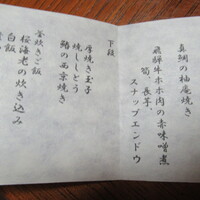 真鯛の柚庵焼き
飛騨牛ホホ肉の赤味噌煮
筍、長芋、
スナップエンドウ
下段
厚焼き玉子
焼ししとう
鰆の西京焼き
釜炊きご飯
桜海老の炊き込み
白飯